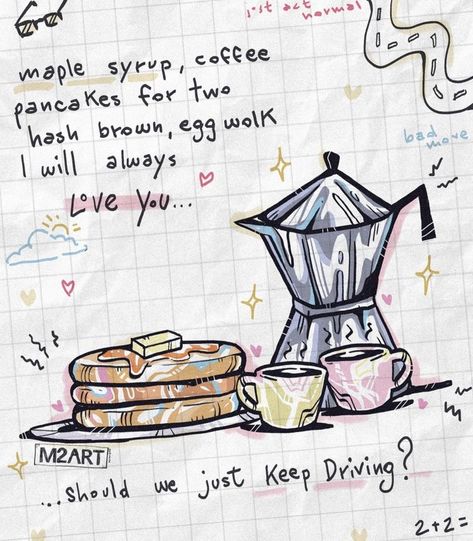 just act
normal
maple syrup, coffee
pancakes for two
hash brown, egg wolk
I will always
Love You...
bad
move
M2ART
...should we just Keep Driving?
2+2=